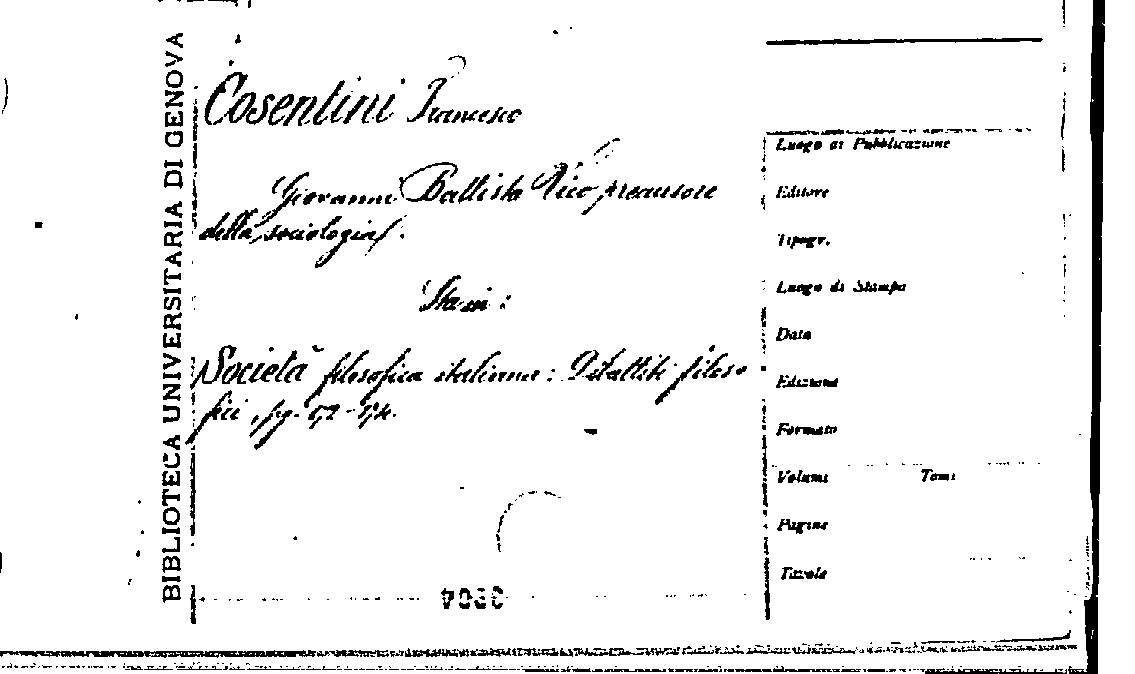 BIBLIOTECA UNIVERSITARIA DI GENOVA
Cosentini Francesco
Giovanni Battista Vico precursore
della sociologia.
Sta in:
Società filosofica italiana: Dibattiti filoso
fici, pg.
Luogo di Pubblicazione
Editore
Tipogr.
Luogo di Stampa
Data
Edizione
Formato
Volumi Tomi
Pagine
Tavole